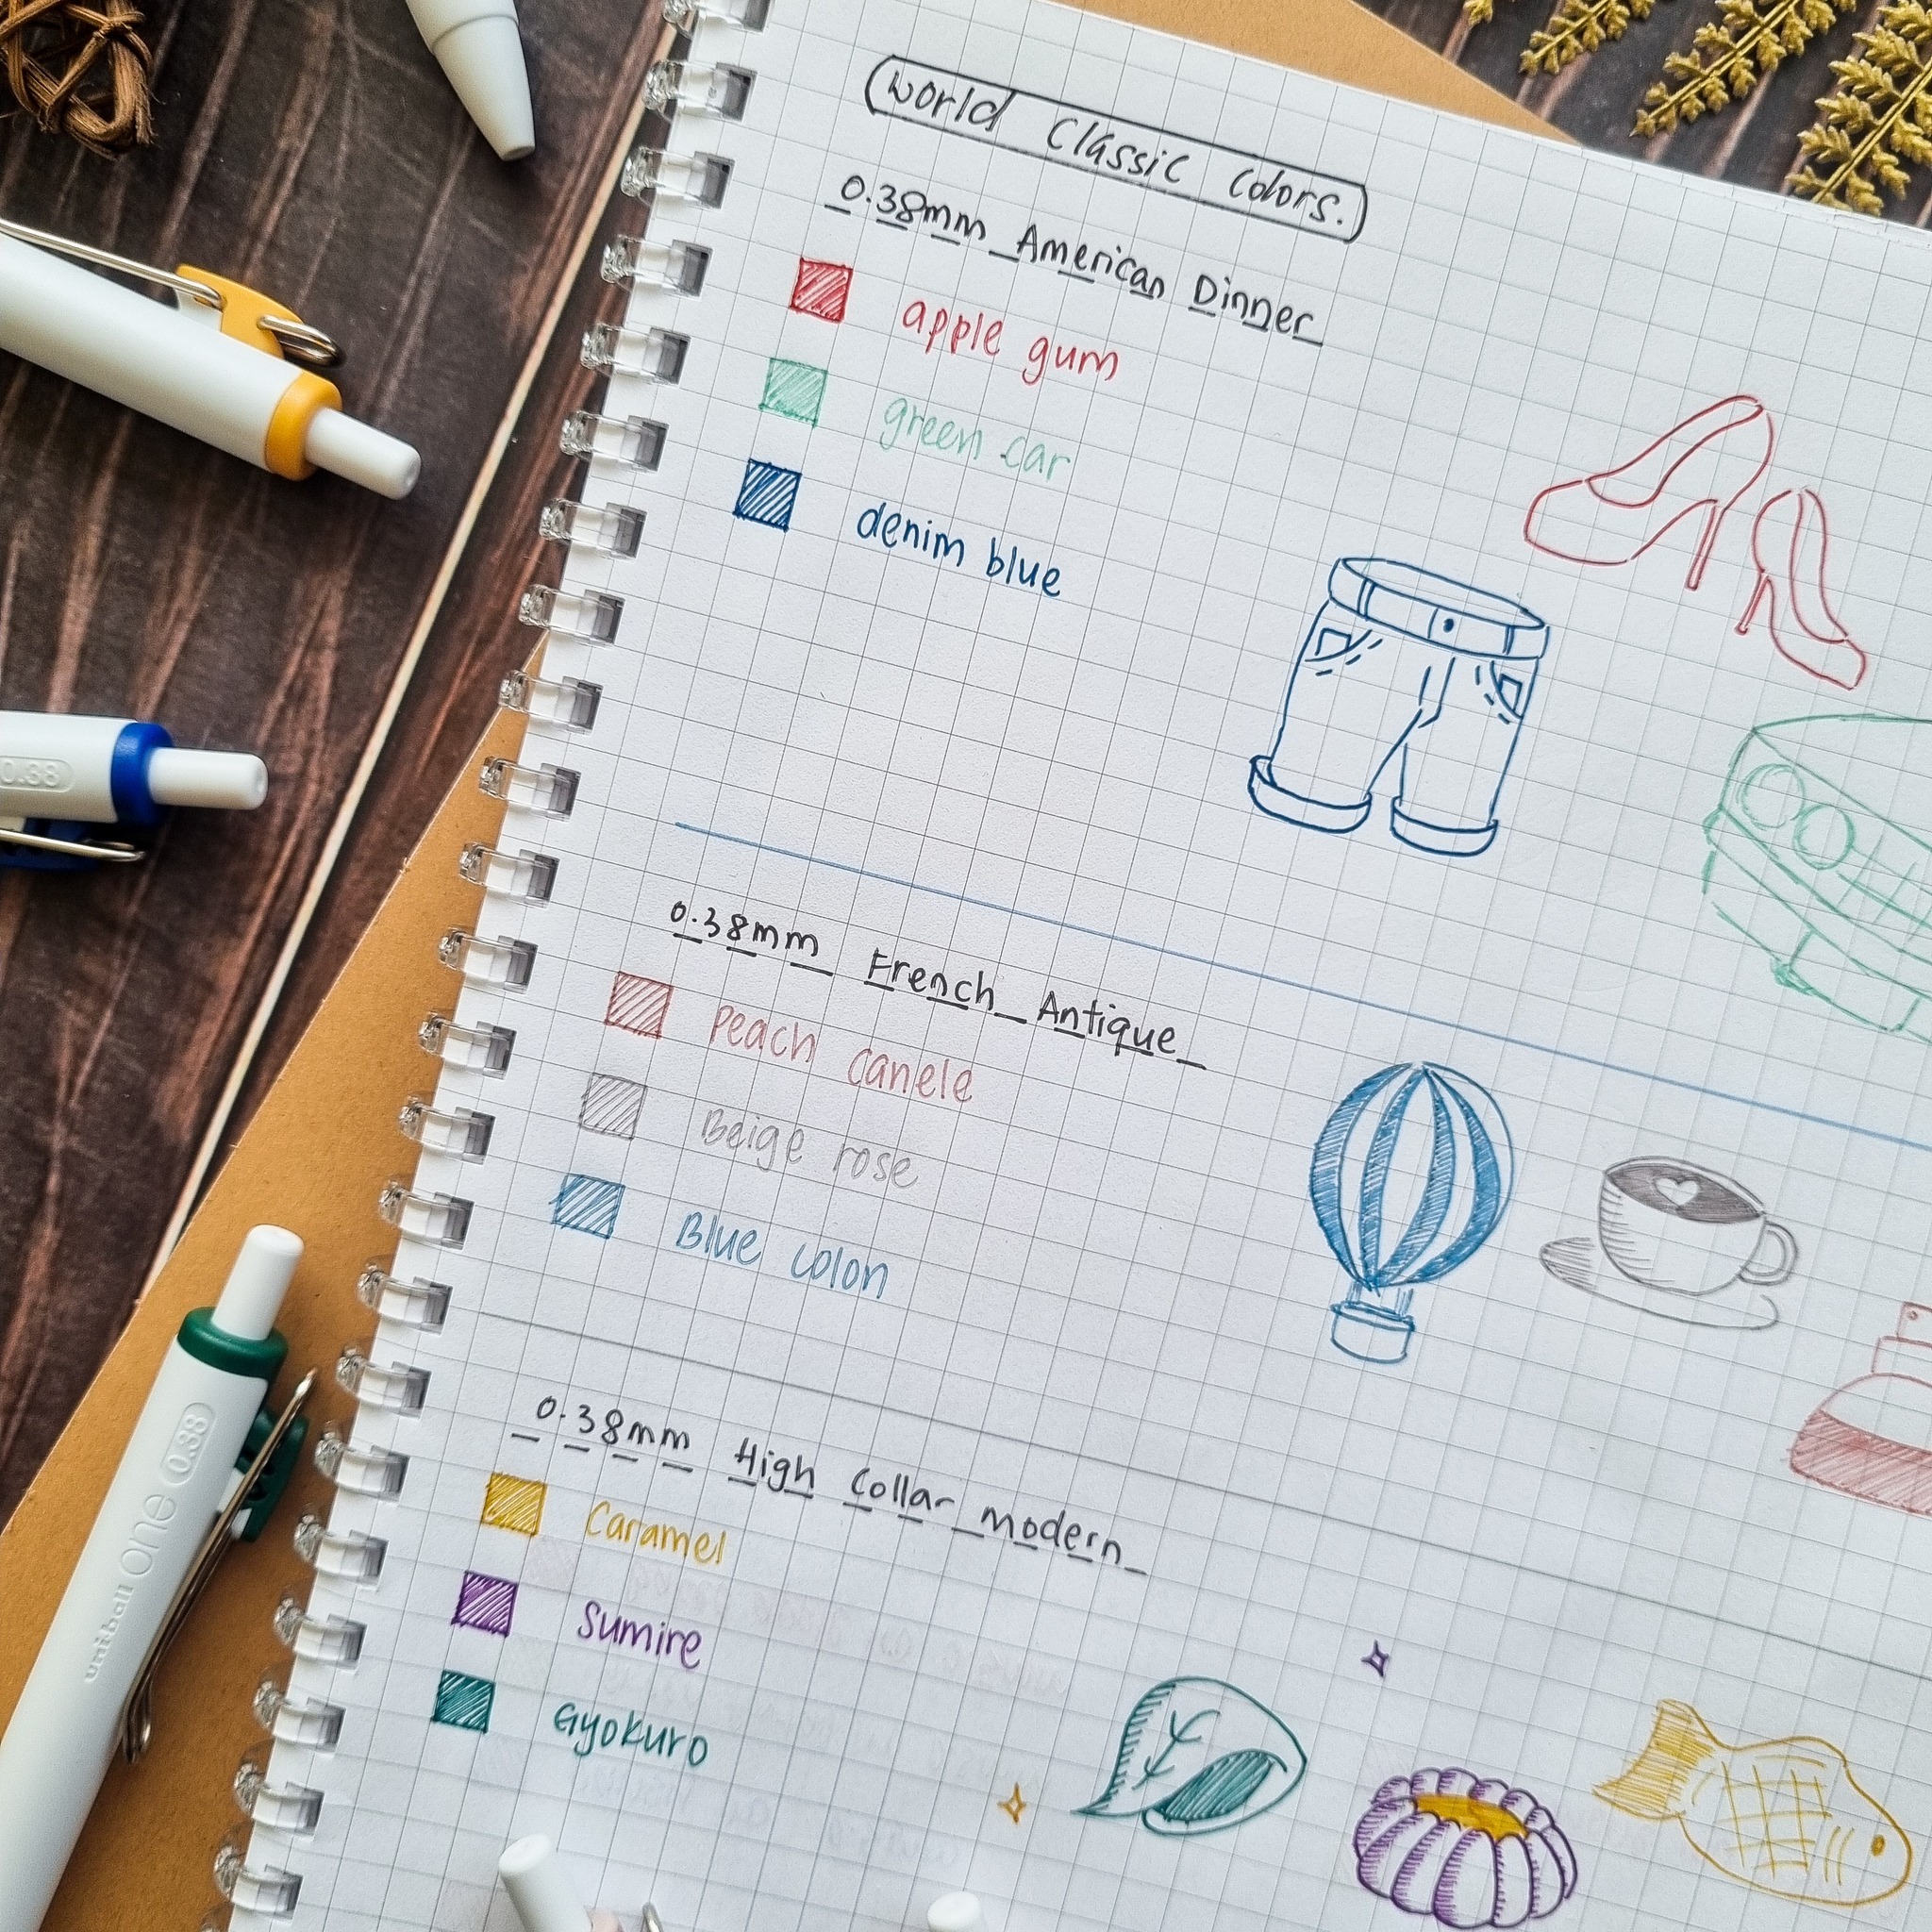 World Classic Colors.
0.38mm American Dinner
apple gum
green car
denim blue
0.38mm French Antique
Peach canele
Beige rose
Blue colon
0.38mm High Collar modern
Caramel
Sumire
Gyokuro
0.38
uniball ONE 0.38